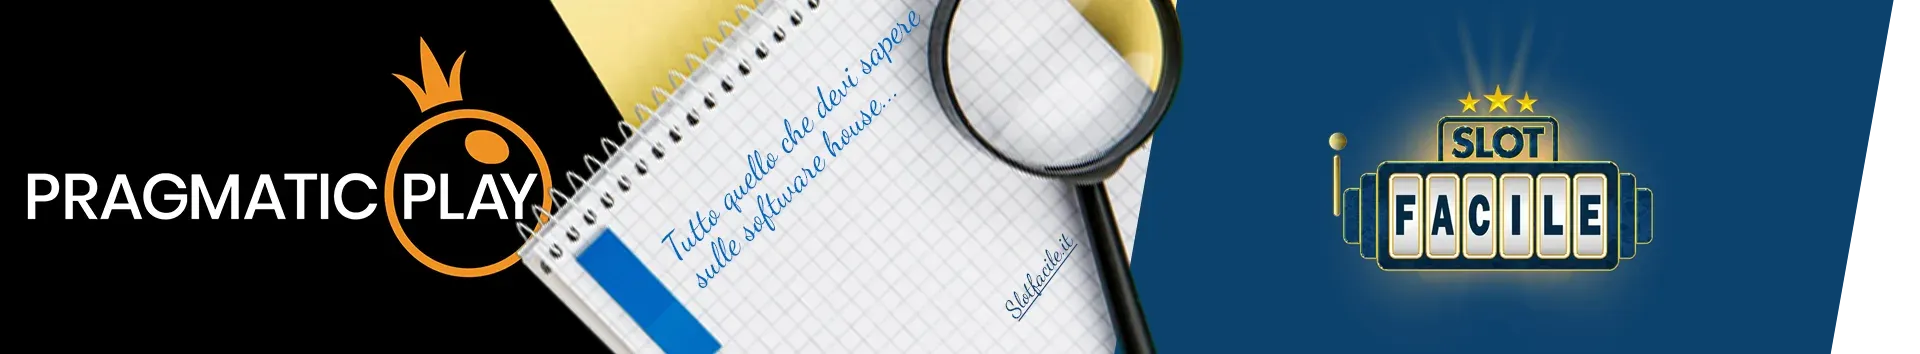 PRAGMATIC PLAY
Tutto quello che devi sapere
sulle software house...
Slotfacile.it
SLOT
FACILE